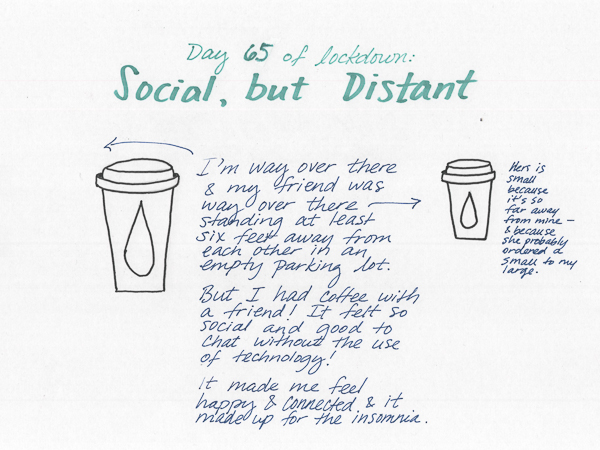 Day 65 of lockdown:
Social, but Distant
I'm way over there
& my friend was
way over there
standing at least
six feet away from
each other in an
empty parking lot.
But I had coffee with
a friend! It felt so
social and good to
chat without the use
of technology!
It made me feel
happy & connected & it
made up for the insomnia.
Hers is
small
because
it's so
far away
from mine –
& because
she probably
ordered a
small to my
large.